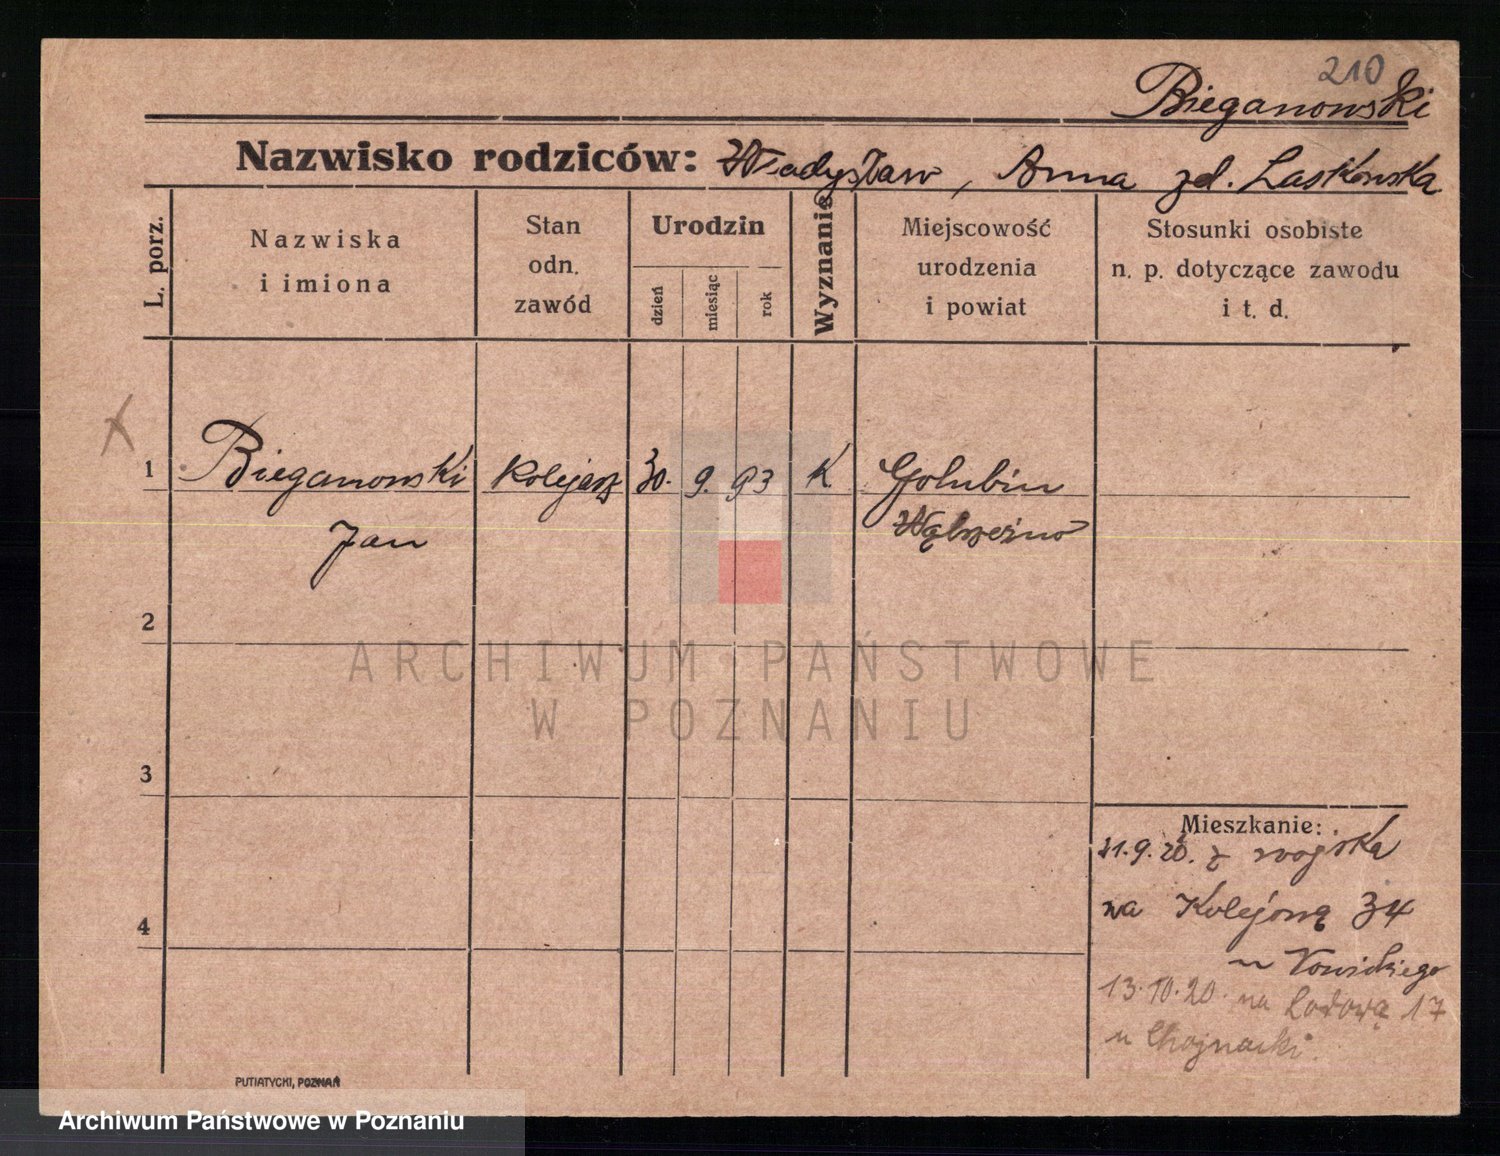 210
Bieganowski
Nazwisko rodziców: Władysław, Anna zd. Laskowska
L. porz.
Nazwiska
i imiona
Stan
odn.
zawód
Urodzin
dzień
miesiąc
rok
Wyznanie
Miejscowość
urodzenia
i powiat
Stosunki osobiste
n. p. dotyczące zawodu
i t. d.
1 Bieganowski kolejarz 30. 9. 93 K. Golubin
Jan Wąbrzeźno
2
3
4
Mieszkanie:
21.9.20. z wojska
na Kolejową 34
u Nowickiego
13.10.20. na Lodową 17
u Chojnacki.
PUTIATYCKI, POZNAŃ
ARCHIWUM PAŃSTWOWE
W POZNANIU
Archiwum Państwowe w Poznaniu